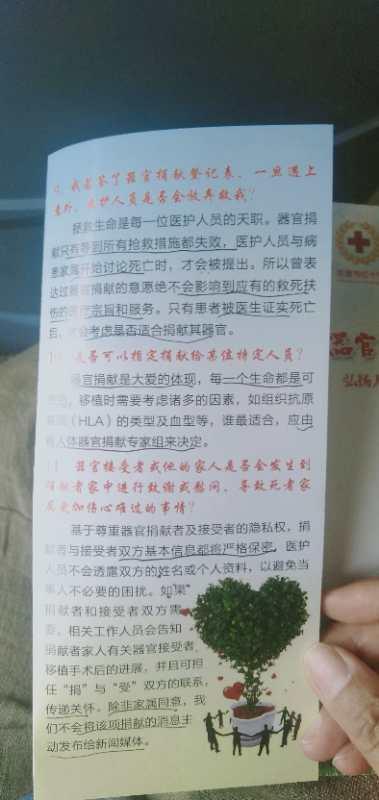 我若签了器官捐献登记表，一旦遇上
意外，医护人员是否会放弃救我？
拯救生命是每一位医护人员的天职。器官捐
献只有等到所有抢救措施都失败，医护人员与病
患家属开始讨论死亡时，才会被提出。所以曾表
达过器官捐献的意愿绝不会影响到应有的救死扶
伤的医疗宗旨和服务。只有患者被医生证实死亡
后，才会考虑是否适合捐献其器官。
是否可以指定捐献给某位特定人员？
器官捐献是大爱的体现，每一个生命都是可
移植时需要考虑诸多的因素，如组织抗原
（HLA）的类型及血型等，谁最适合，应由
人体器官捐献专家组来决定。
11 器官接受者或他的家人是否会发生到
捐献者家中进行致谢或慰问、导致死者家
属更加伤心难过的事情？
基于尊重器官捐献者及接受者的隐私权，捐
献者与接受者双方基本信息都将严格保密，医护
人员不会透露双方的姓名或个人资料，以避免当
事人不必要的困扰。如果
捐献者和接受者双方需
要，相关工作人员会告知
捐献者家人有关器官接受者
移植手术后的进展，并且可担
任“捐”与“受”双方的联系，
传递关怀。除非家属同意，我
们不会将该项捐献的消息主
动发布给新闻媒体。
器官
弘扬